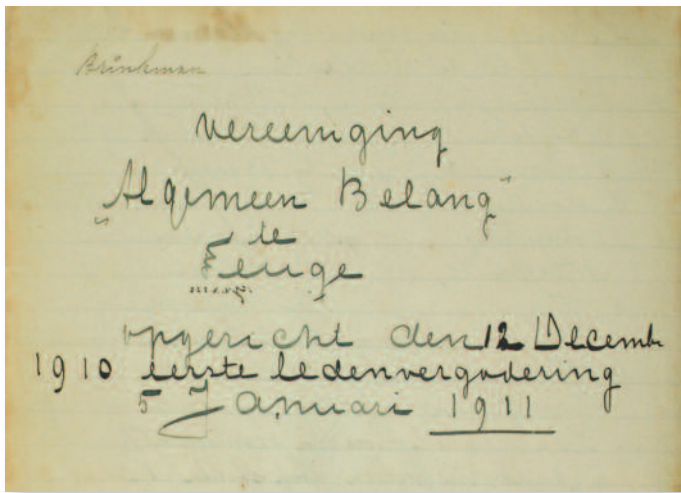 Brinkman
Vereeniging
„Algemeen Belang"
te
Teuge
opgericht den 12 Decemb
1910 eerste ledenvergadering
5 Januari 1911